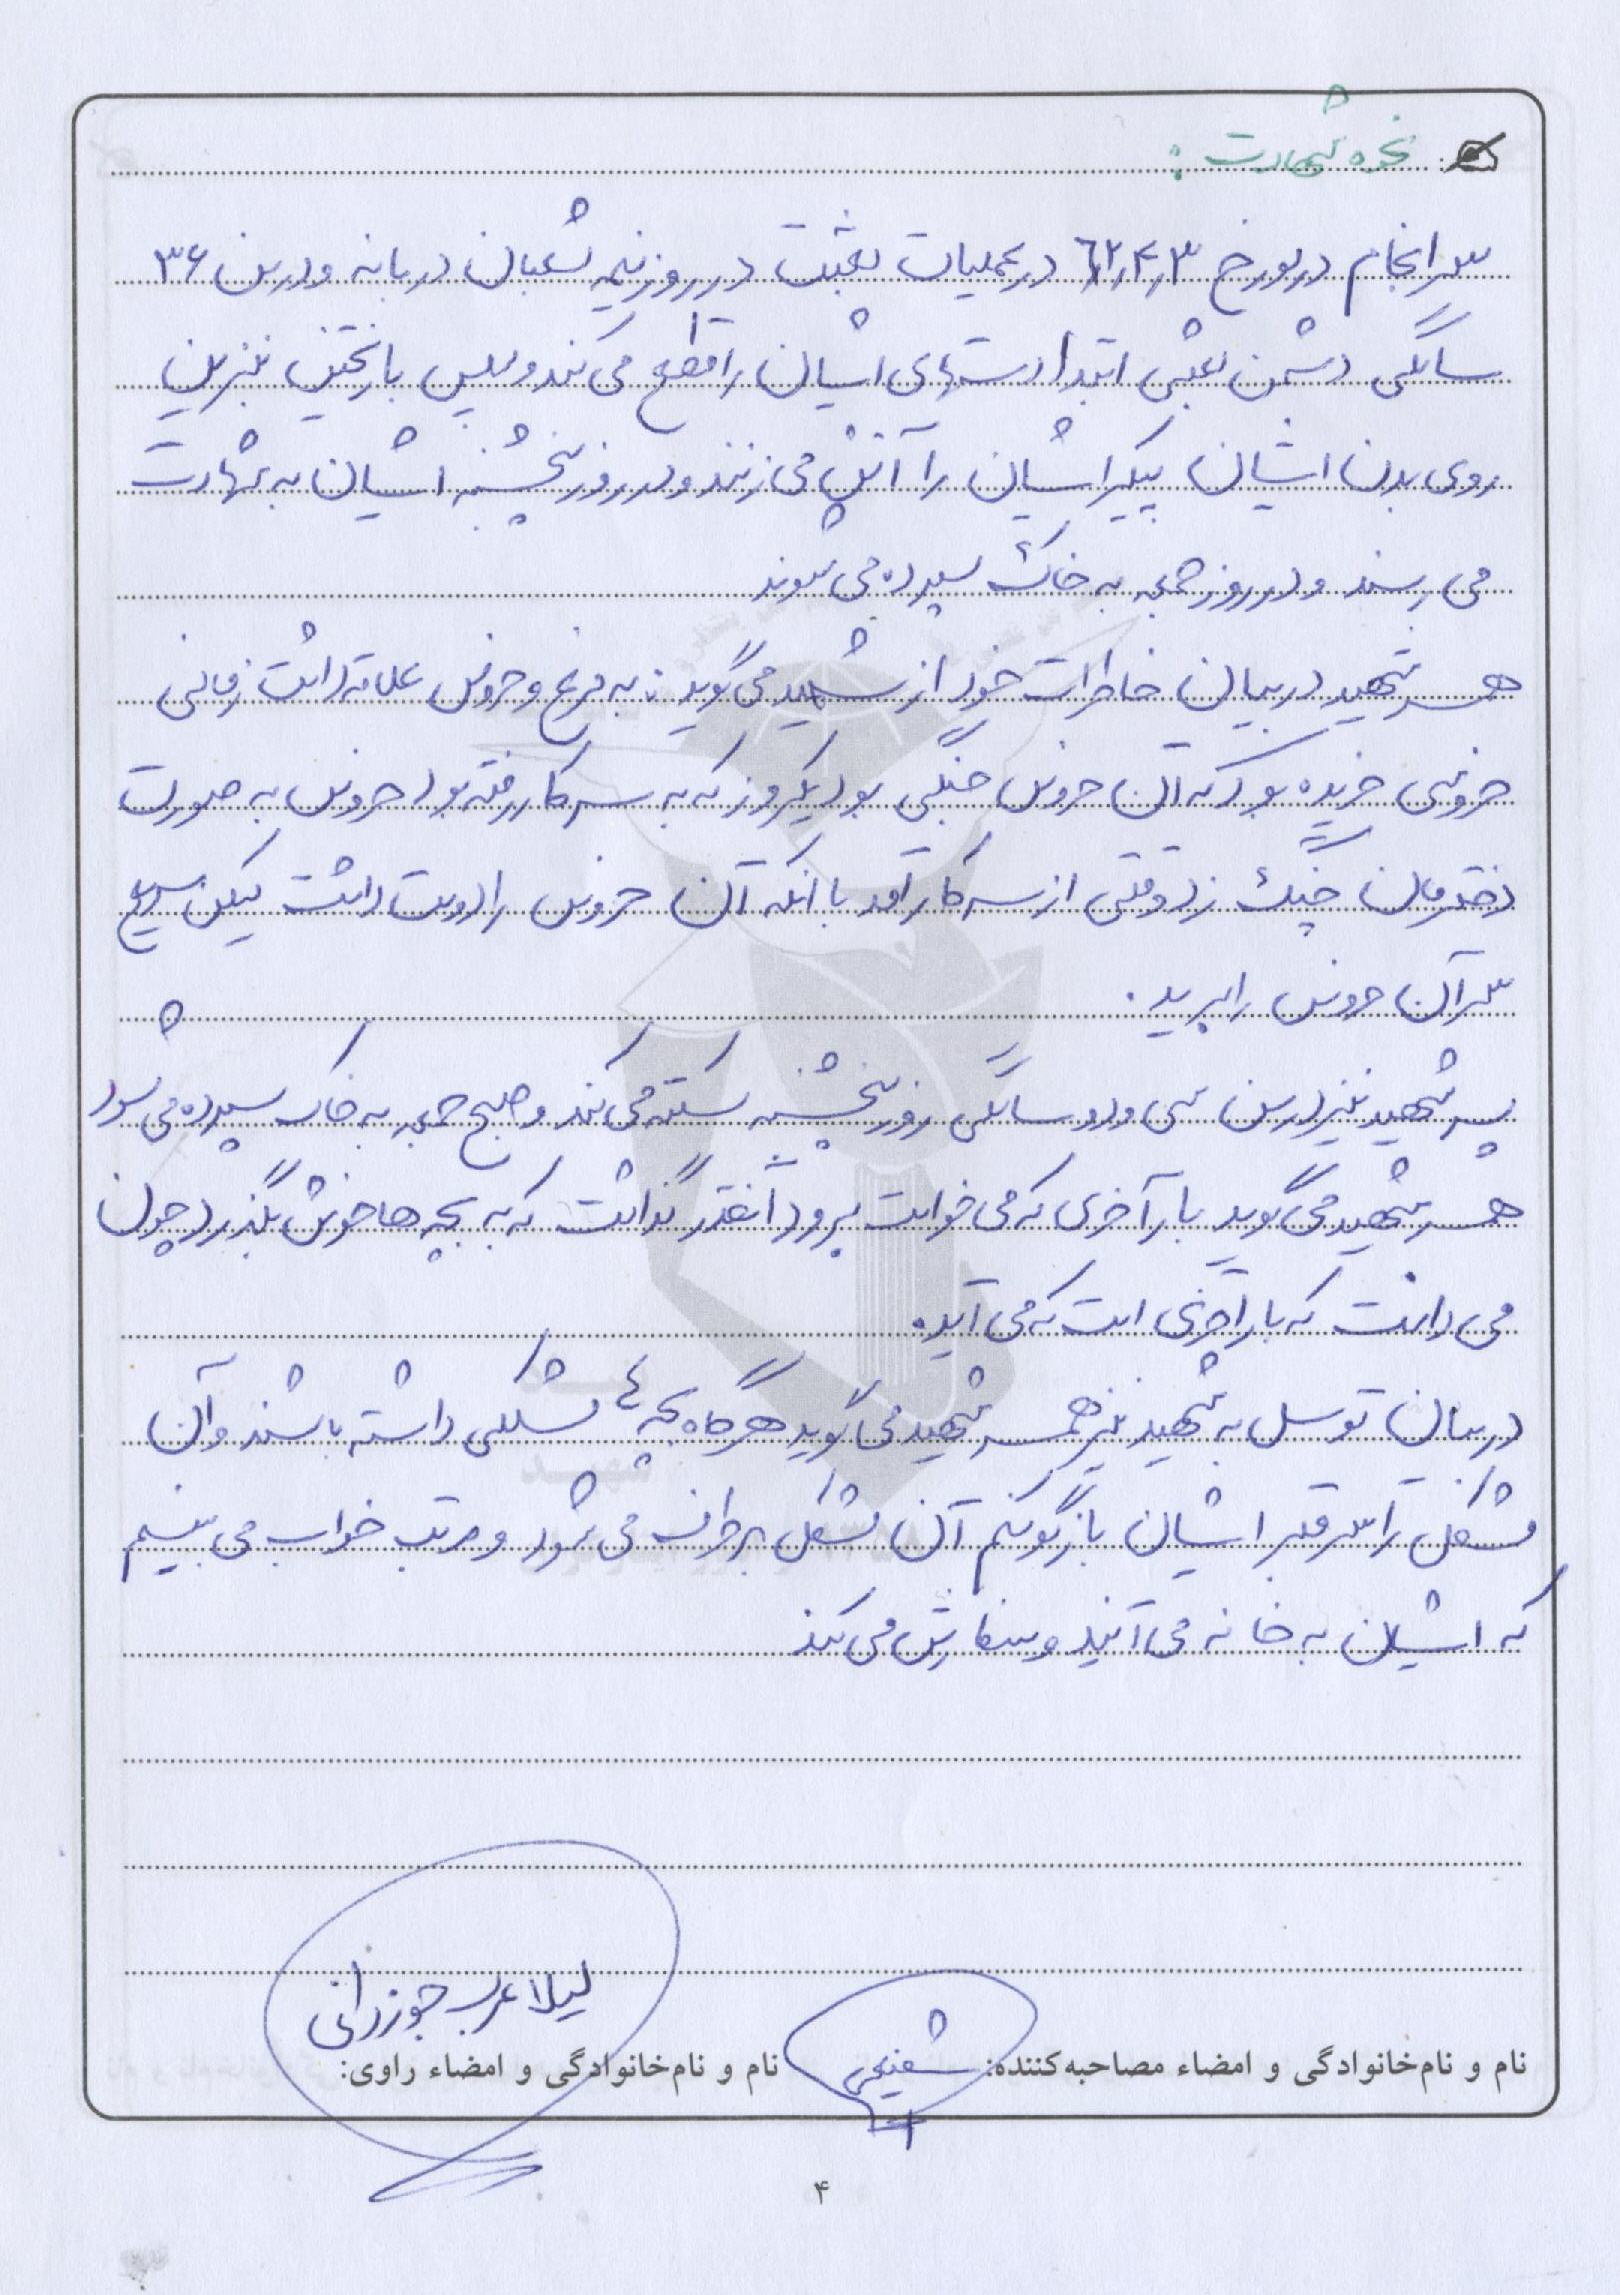 نحوه شهادت :
سرانجام در مورخ ۶۲/۴/۳ در عملیات بعثت در روز نیمه شعبان در بانه و در سن ۳۶
سالگی دشمن بعثی ابتدا دستهای ایشان را قطع می کند و سپس با ریختن بنزین
روی بدن ایشان پیکر ایشان را آتش می زنند و در روز پنجشنبه ایشان به شهادت
می رسند و در روز جمعه به خاک سپرده می شوند
همسر شهید در بیان خاطرات خود از شهید می گوید : به مرغ و خروس علاقه داشت زمانی
خروسی خریده بود که آن خروس جنگی بود یکروز که به سر کار رفته بود خروس به صورت
دخترمان چنگ زد وقتی از سر کار آمد با آنکه آن خروس را دوست داشت لیکن سریع
سر آن خروس را برید .
پسر شهید نیز در سن سی و دو سالگی روز پنجشنبه سکته می کند و صبح جمعه به خاک سپرده می شود
همسر شهید می گوید بار آخری که می خواست برود آنقدر گذاشت که به بچه ها خوش بگذرد چون
می دانست که بار آخری است که می آید .
در بیان توسل به شهید نیز همسر شهید می گوید هرگاه بچه ها مشکلی داشته باشند و آن
مشکل را سر قبر ایشان بازگو کنم آن مشکل برطرف می شود و مرتب خواب می بینیم
که ایشان به خانه می آیند و سفارش می کند
لیلا عرب جوزدانی
نام و نام‌خانوادگی و امضاء مصاحبه‌کننده: نام و نام‌خانوادگی و امضاء راوی:
۴